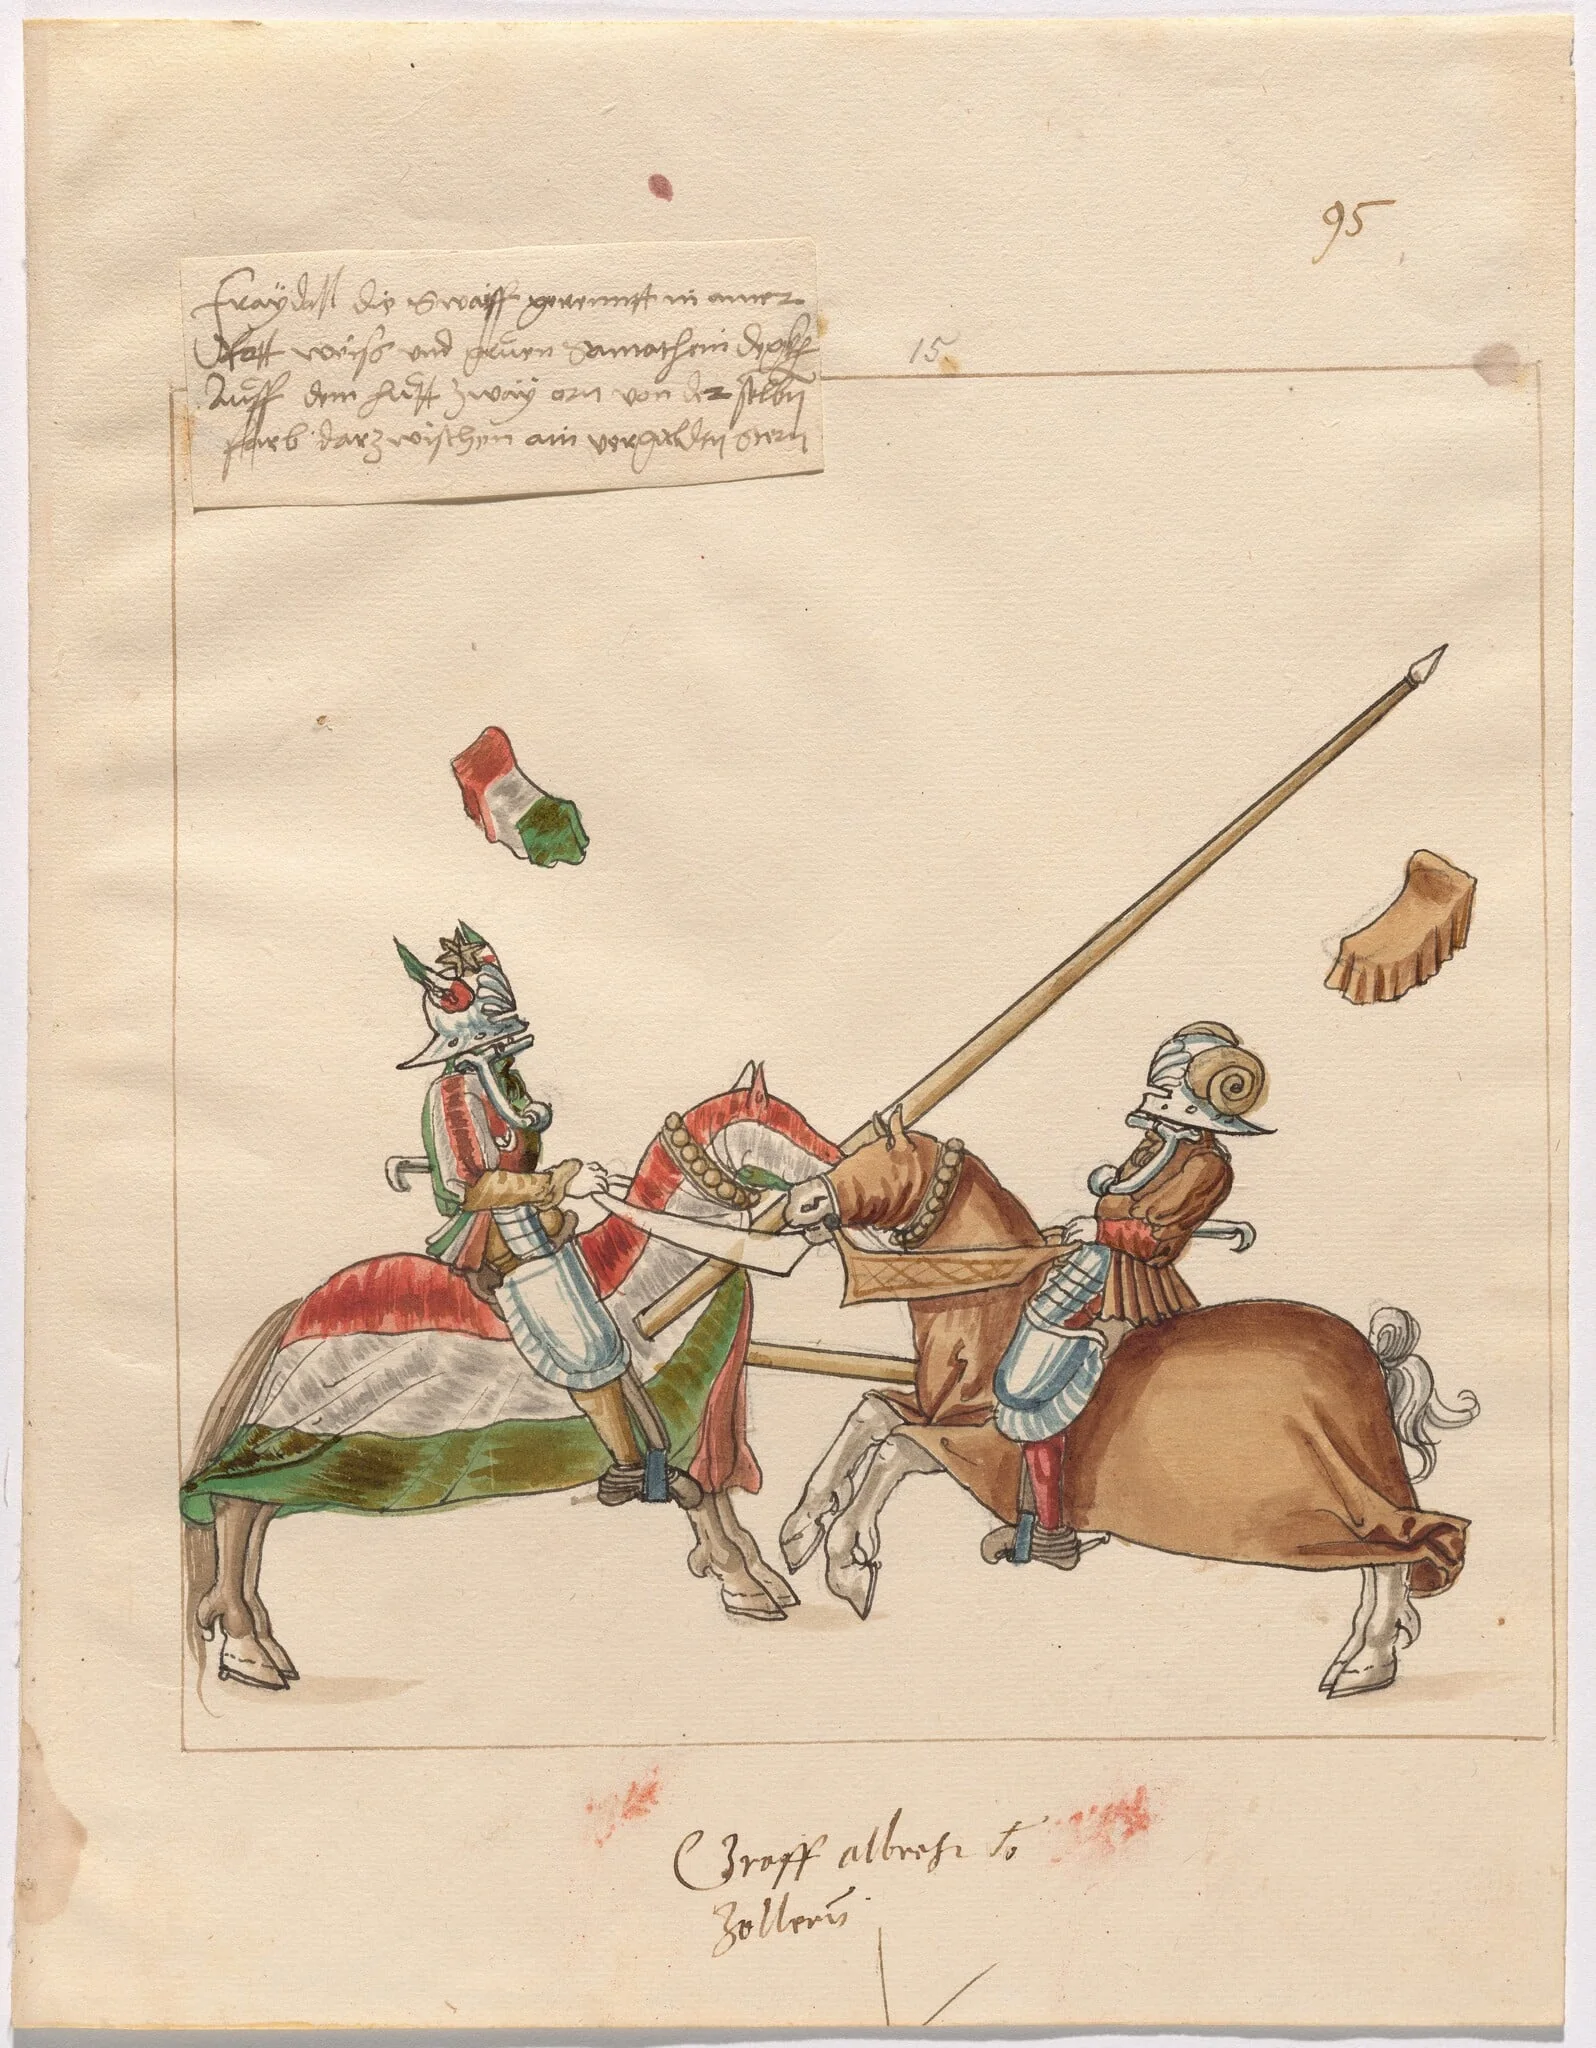 95
15
Fraydall die Swaiff gerennt in ainer
Rott weiss und gruen Samathein
Auff dem huett zway orn von der selben
farb darzwischen ain vergulden Stern
Graff albrecht vo
Zollern